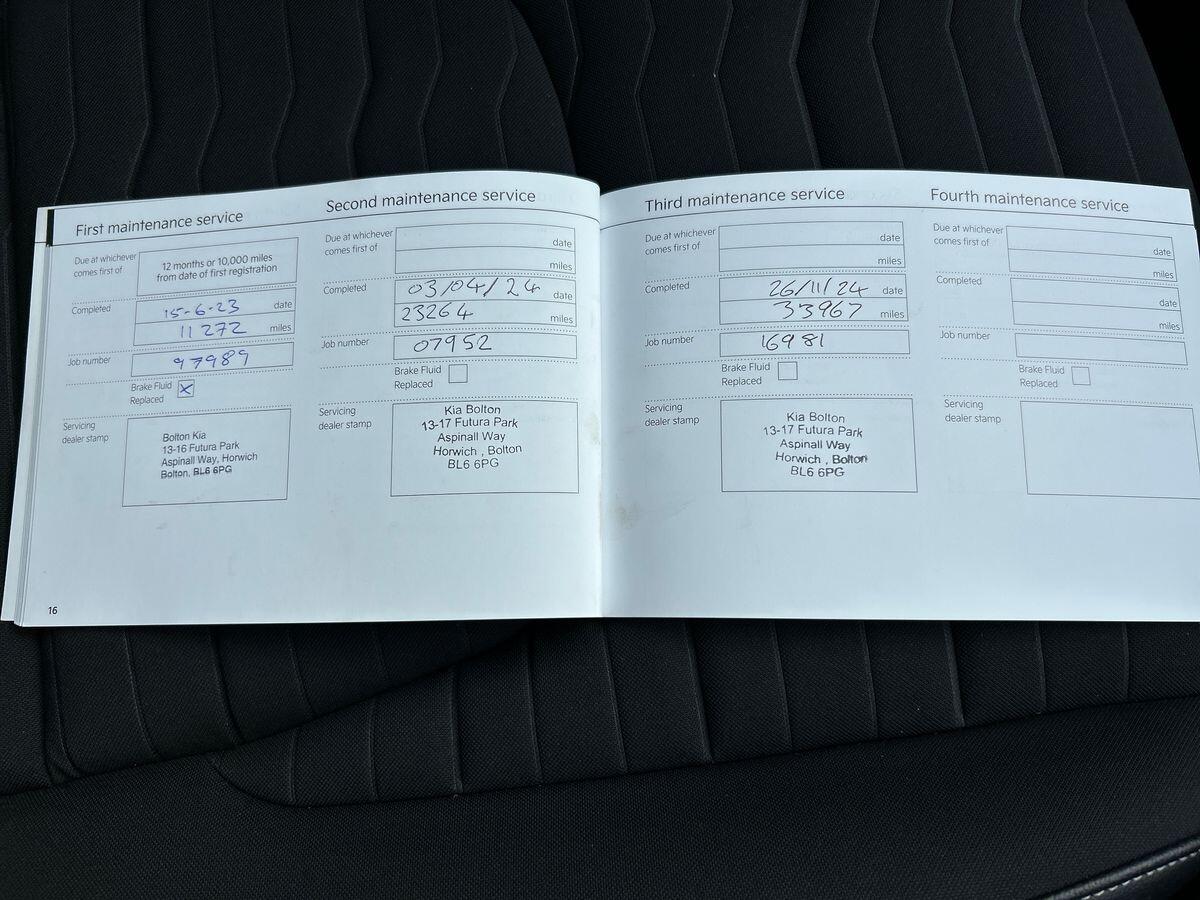 First maintenance service
Due at whichever
comes first of
12 months or 10,000 miles
from date of first registration
Completed
15-6-23 date
11272 miles
Job number
97989
Brake Fluid
Replaced X
Servicing
dealer stamp
Bolton Kia
13-16 Futura Park
Aspinall Way, Horwich
Bolton, BL6 6PG
16
Second maintenance service
Due at whichever
comes first of
date
miles
Completed
03/04/24 date
23264 miles
Job number
07952
Brake Fluid
Replaced
Servicing
dealer stamp
Kia Bolton
13-17 Futura Park
Aspinall Way
Horwich , Bolton
BL6 6PG
Third maintenance service
Due at whichever
comes first of
date
miles
Completed
26/11/24 date
33967 miles
Job number
16981
Brake Fluid
Replaced
Servicing
dealer stamp
Kia Bolton
13-17 Futura Park
Aspinall Way
Horwich , Bolton
BL6 6PG
Fourth maintenance service
Due at whichever
comes first of
date
miles
Completed
date
miles
Job number
Brake Fluid
Replaced
Servicing
dealer stamp